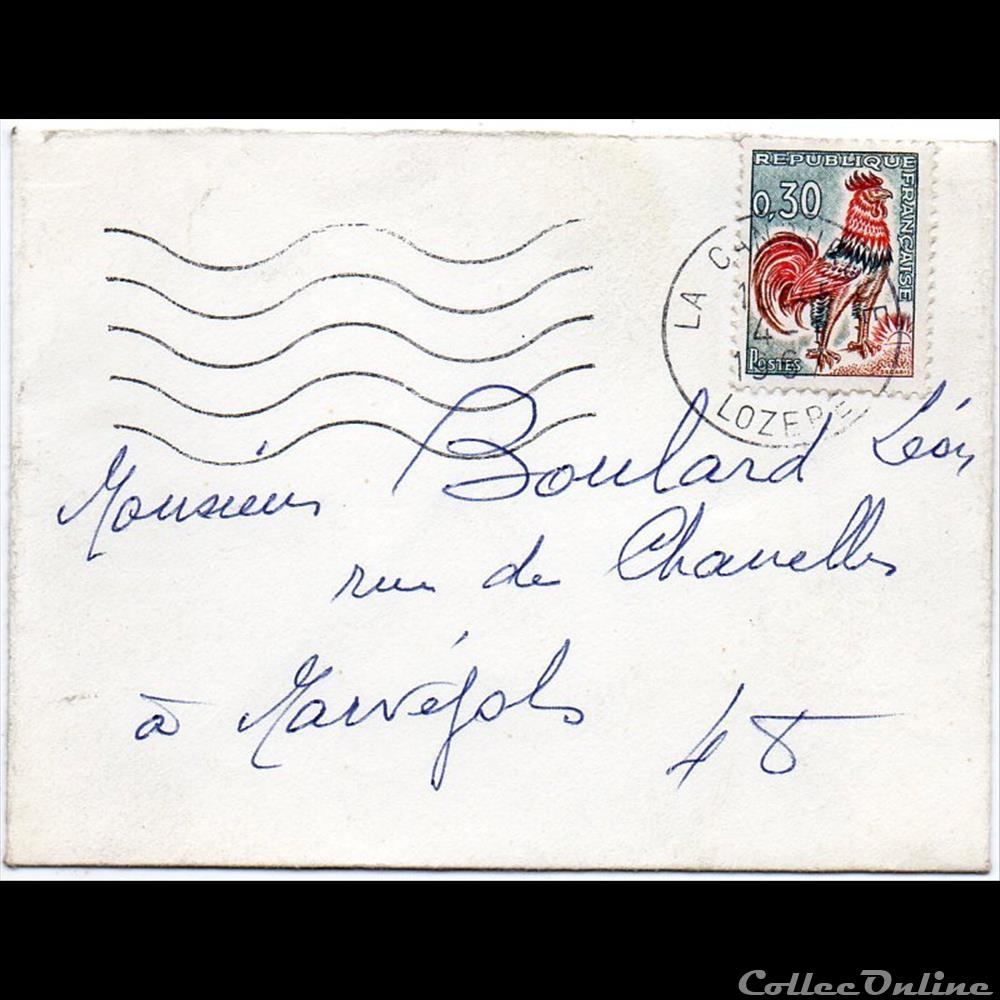 REPUBLIQUE FRANÇAISE
0,30
POSTES
LA
4
196
LOZERE
Monsieur Boulard Léon
rue de Chanelles
à Marvéjols 48
ColleeOnline